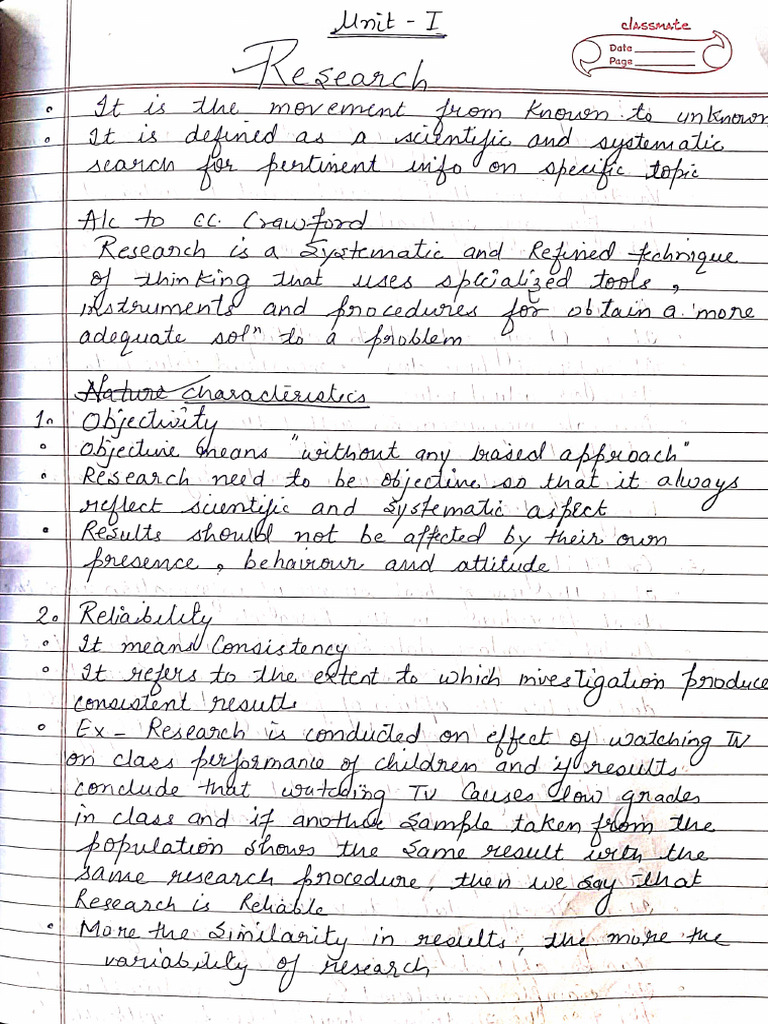 Unit - I
classmate
Date
Page
Research
• It is the movement from known to unknown
• It is defined as a scientific and systematic
search for pertinent info on specific topic
A/c to CC. Crawford
Research is a Systematic and Refined technique
of thinking that uses specialized tools,
instruments and procedures for obtain a more
adequate solⁿ to a problem
Nature Characteristics
1. Objectivity
• Objective means "without any biased approach"
• Research need to be objective so that it always
reflect scientific and systematic aspect
• Results should not be affected by their own
presence, behaviour and attitude
2. Reliability
• It means Consistency
• It refers to the extent to which investigation produce
consistent results
• Ex - Research is conducted on effect of watching TV
on class performance of children and if results
conclude that watching TV causes low grades
in class and if another sample taken from the
population shows the same result with the
same research procedure, then we say that
Research is Reliable
• More the similarity in results, the more the
variability of research